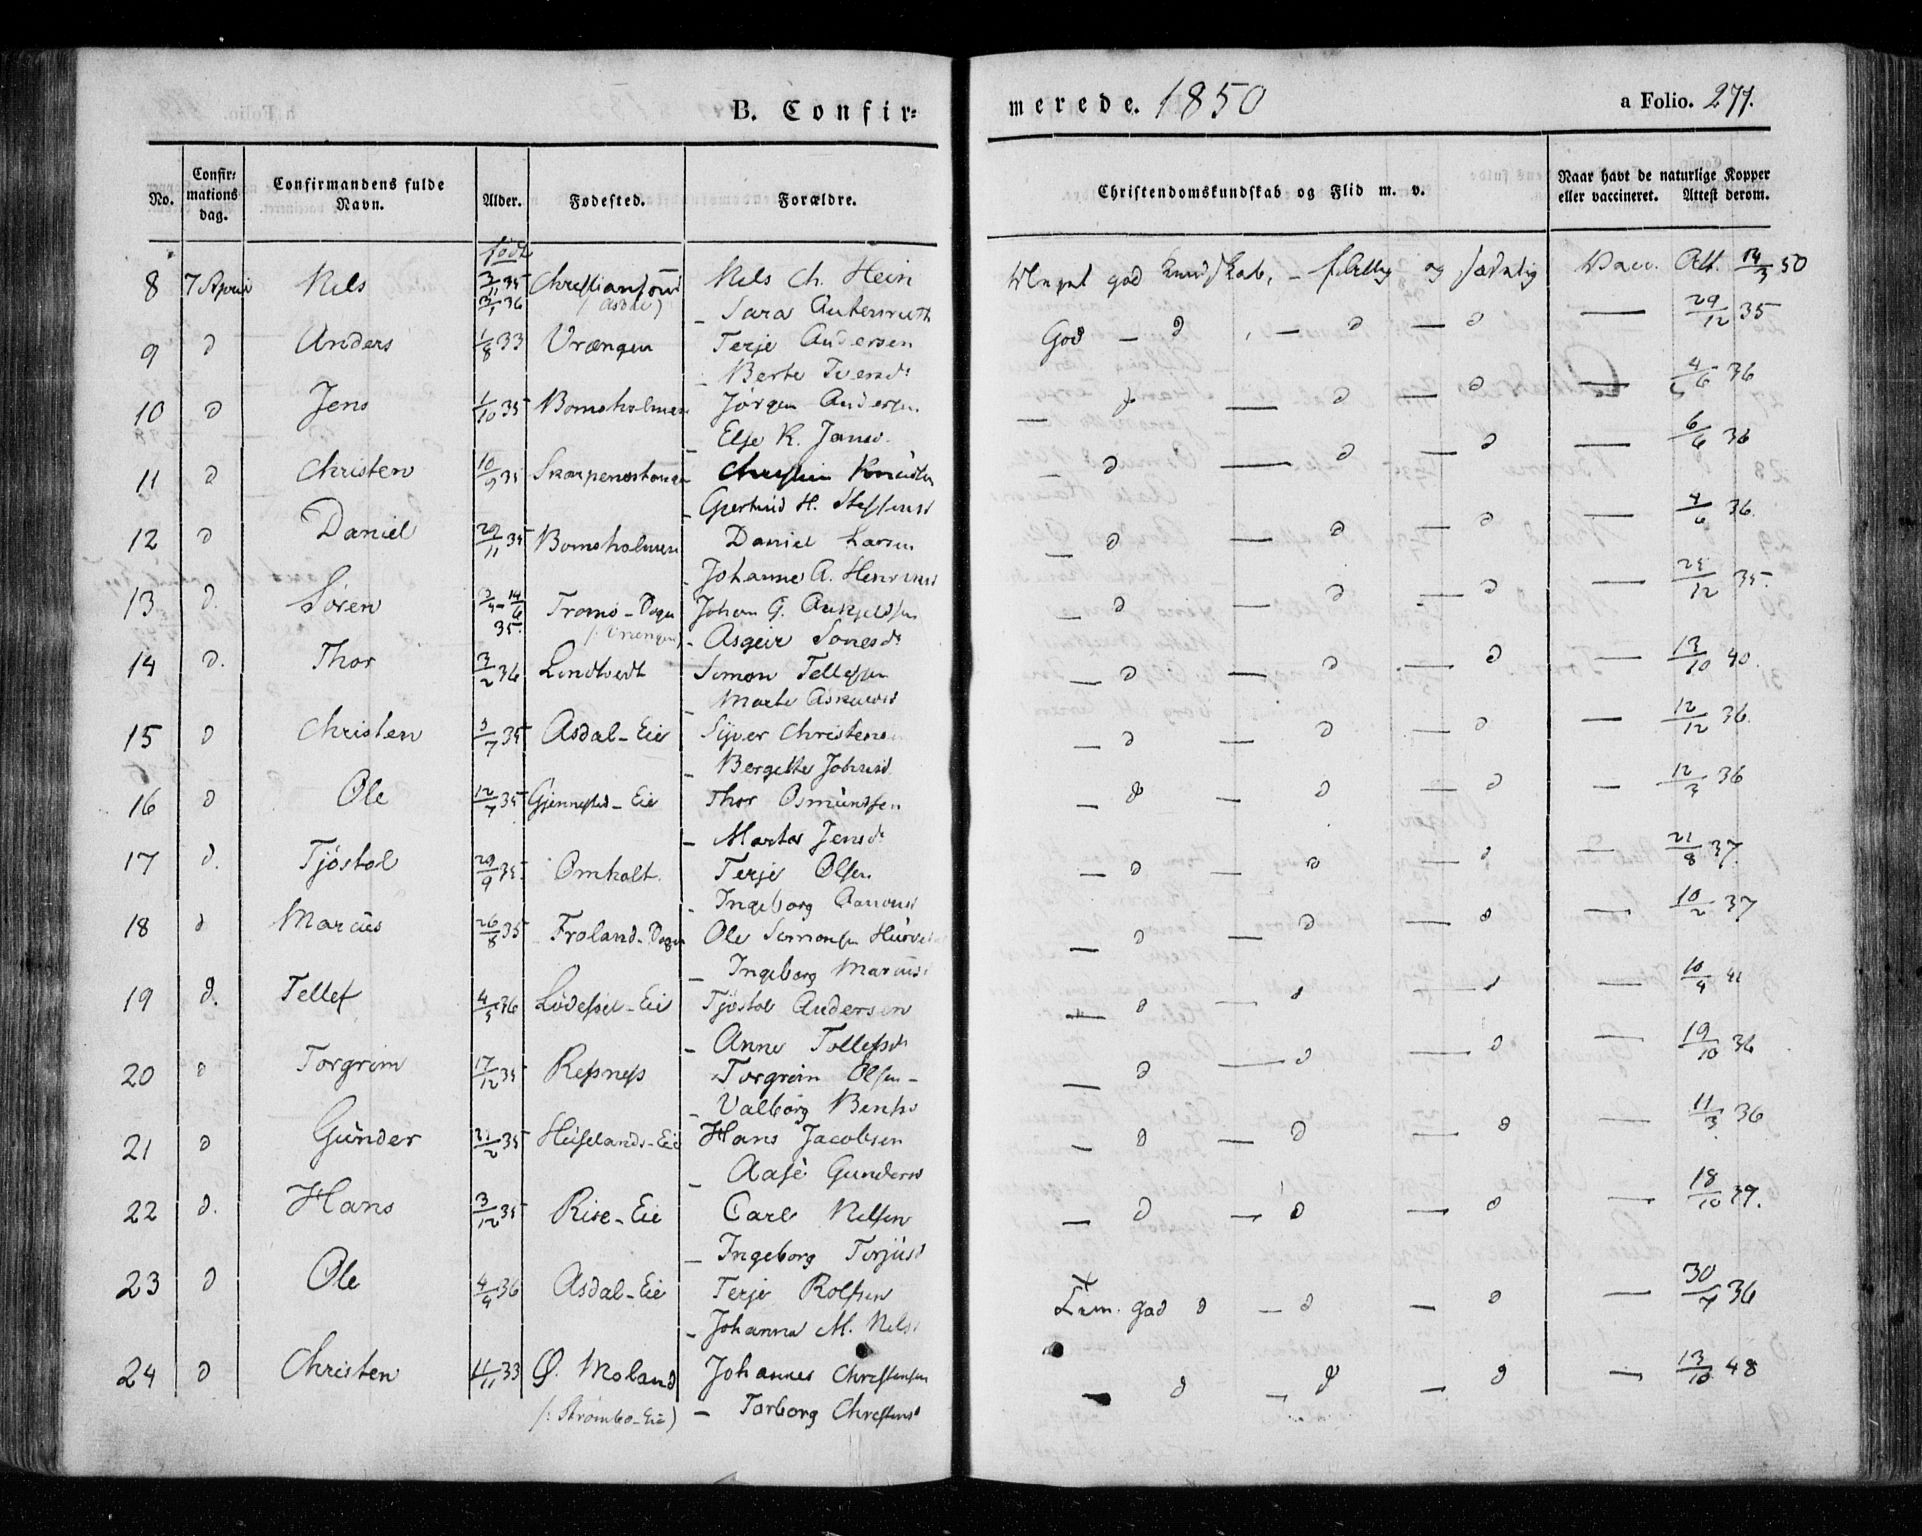 B. Confir-
merede. 1850
a Folio. 277.
No.
Confir-
mations
dag.
Confirmandens fulde
Navn.
Alder.
Fødested.
Forældre.
Christendomskundskab og Flid m. v.
Naar havt de naturlige Kopper
eller vaccineret. Attest derom.
født
8 7 April Nils 3/11 35 Christiansund Nils Ch. Hein Meget god Kundskab, - flittig og sædelig Vacc. Att. 14/3 50
13/1 36 (Asdal) - Sara
9 d Anders 1/8 33 Vrængen Terje Andersen God - d - d - d — 29/12 35
- Berte Iversd.
10 d Jens 1/10 35 Bomsholmen Jörgen Andersen — — d — d — 4/6 36
- Else K. Jansd.
11 d Christen 10/9 35 Christen Knudsen — d — d — d — 6/6 36
- Gjertrud H. Steffensd
12 d Daniel 29/11 35 Bomsholmen Daniel Larsen — d — d — d — 4/6 36.
- Johanne A.
13 d. Søren 14/6 Tromø - Sogn Johan G. — d — d — d — 25/12 35.
35. (: Vrængen) - Asgjer
14 d. Thor 3/2 36 Lindtvedt Simon Tellefsen — d — d — d — 13/10 40.
- Marte
15 d Christen 3/7 35 Asdal - Eie Syver Christensen — d — d — d — 12/12 36.
- Bergitte
16 d Ole 12/7 35 Gjennestad - Eie Thor Osmundsen — d — d — d — 12/3 36
- Marta Jensd.
17 d. Tjöstol 29/9 35. Omholt. Terje Olsen — d — d — d — 21/8 37.
- Ingeborg
18 d Marcus 26/8 35 Froland - Sogn Ole Simonsen — d — d — d — 10/2 37
- Ingeborg Marcusd
19 d. Tellef 4/3 36 - Eie Tjöstol Andersen — d — d — d — 10/4 41
- Anne Tellefsd.
20 d Torgrim 17/12 35 Refsnefs Torgrim Olsen — d — d — d — 19/10 36
- Valborg
21 d Gunder 21/2 35 - Eie Hans Jacobsen — d — d — d — 11/3 36
- Aase Gundersd
22 d. Hans 3/12 35 Rise - Eie Carl Nilsen — d — d — d — 18/10 39.
- Ingeborg Terjusd
23 d Ole 4/4 36 Asdal - Eie Terje Rolfsen Tem. god d — d — d — 30/7 36
- Johanne M. Nilsd
24 d Christen 11/11 33 Ø. Moland Johannes Christensen — d — d — d — 13/10 48
(: Strømbo - Eie) - Torborg Christensd